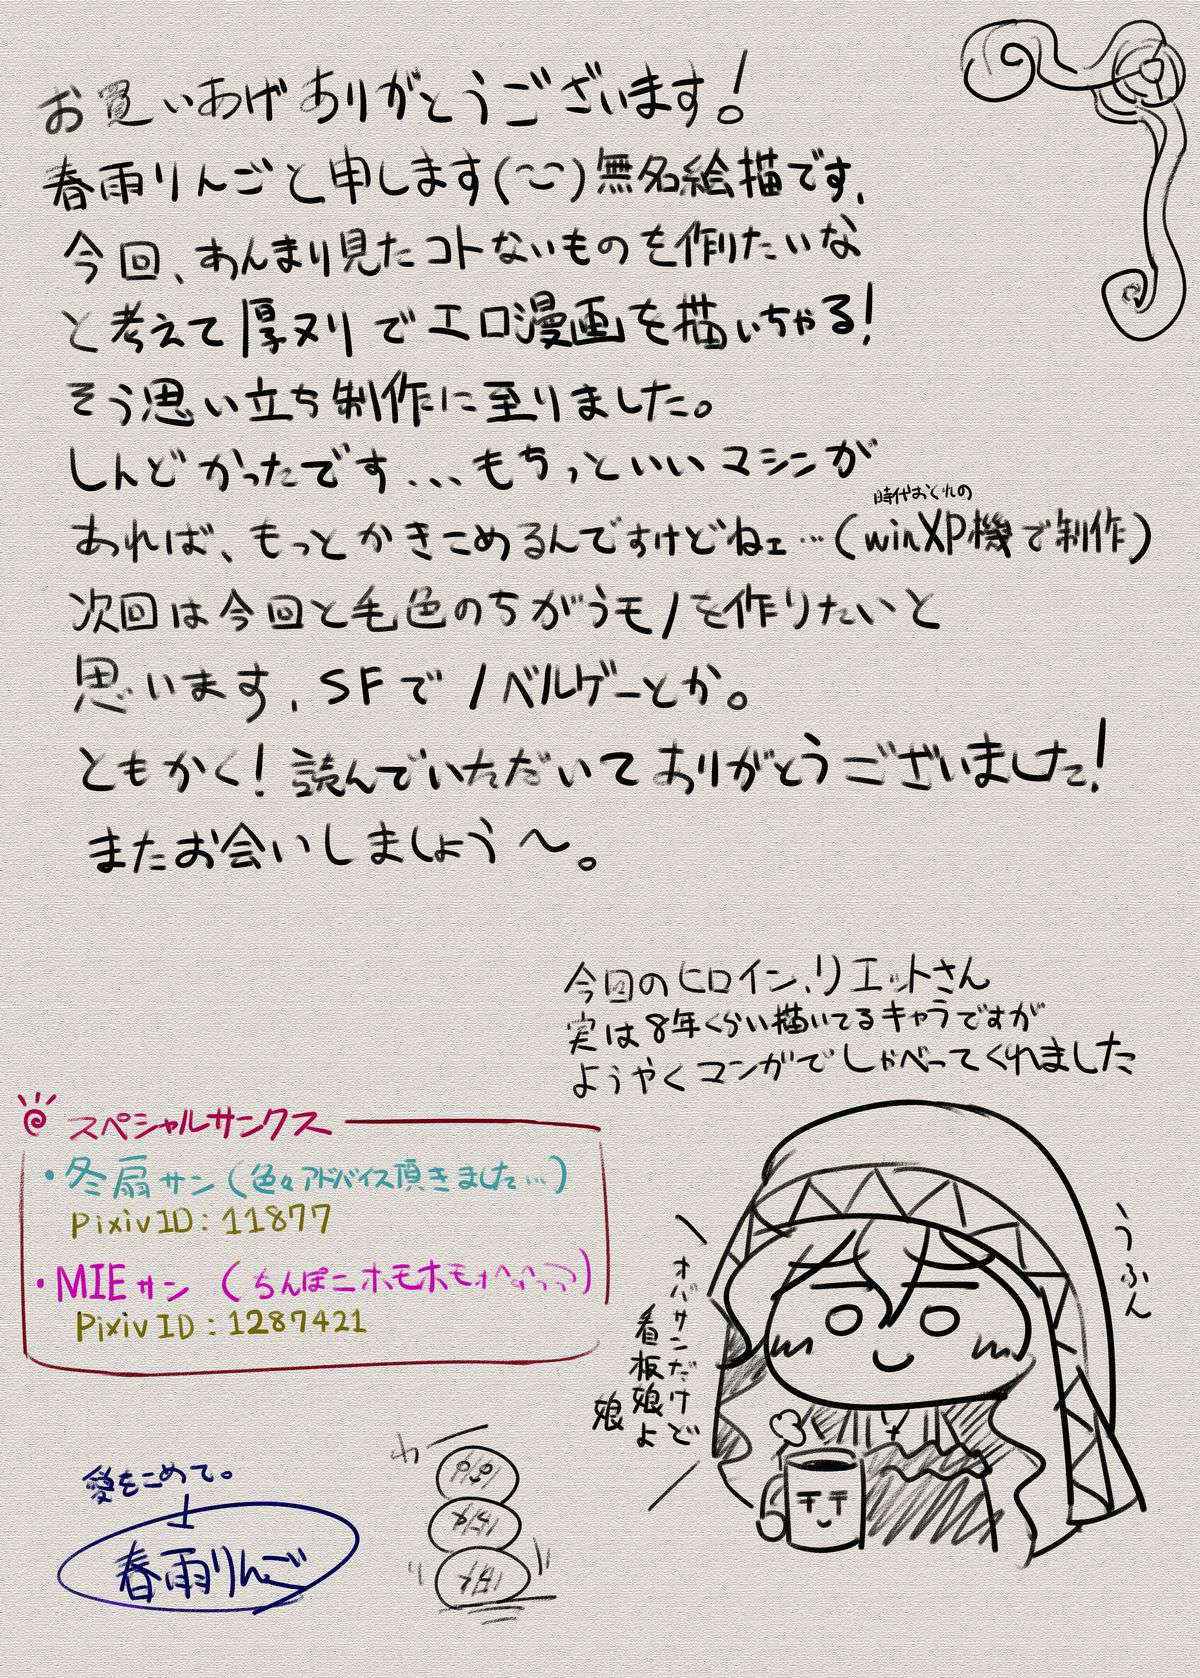 お買いあげありがとうございます!
春雨りんごと申します(^^)無名絵描です、
今回、あんまり見たコトないものを作りたいな
と考えて厚ヌリでエロ漫画を描いちゃる!
そう思い立ち制作に至りました。
しんどかったです...もちっといいマシンが
時代おくれの
あれば、もっとかきこめるんですけどねェ…(winXP機で制作)
次回は今回と毛色のちがうモノを作りたいと
思います、SFでノベルゲーとか。
ともかく!読んでいただいてありがとうございました!
またお会いしましょう〜。
今回のヒロイン、リエットさん
実は8年くらい描いてるキャラですが
ようやくマンガでしゃべってくれました
スペシャルサンクス
・冬扇サン(色々アドバイス頂きました…)
pixiv ID:11877
・MIEサン(ちんぽニホモホモ
Pixiv ID:1287421
うふん
オバサンだけど
看板娘よ
娘
愛をこめて。
春雨りんご